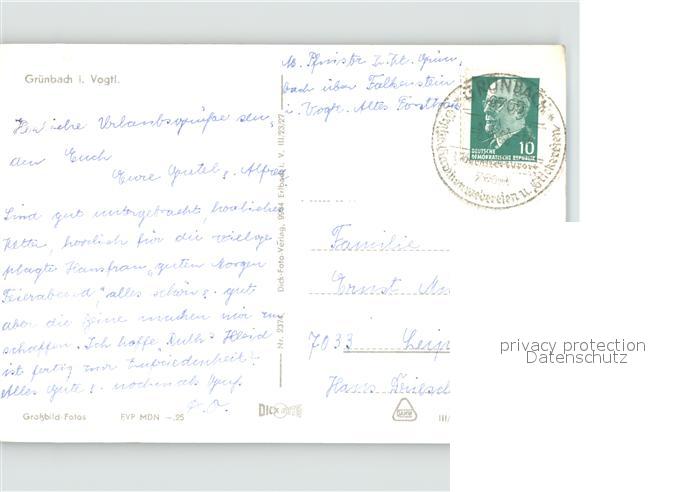 Grünbach i. Vogtl.
Herzliche Urlaubsgrüße sen-
den Euch
Eure Gretel u. Alfred
Sind gut untergebracht, herrliches
Bette, herrlich für die vielge
plagte Hausfrau, "guten Morgen
Feierabend", alles schön u. gut
aber die Beine machen mir zu
schaffen. Ich hoffe Ruth's Kleid
ist fertig zur Zufriedenheit!
Alles Gute u. nochmals Gruß
Großbild-Fotos EVP MDN —.25
Nr. 2374 Dick-Foto-Verlag, 9934 Erlbach i. V. III/23/27
bach über Falkenstein
i. Vogtl. Altes Forsthaus
GRÜNBACH
DEUTSCHE
DEMOKRATISCHE REPUBLIK
10
Familie
Ernst
7033 Leip
Hans
DICK FOTO
III/
privacy protection
Datenschutz